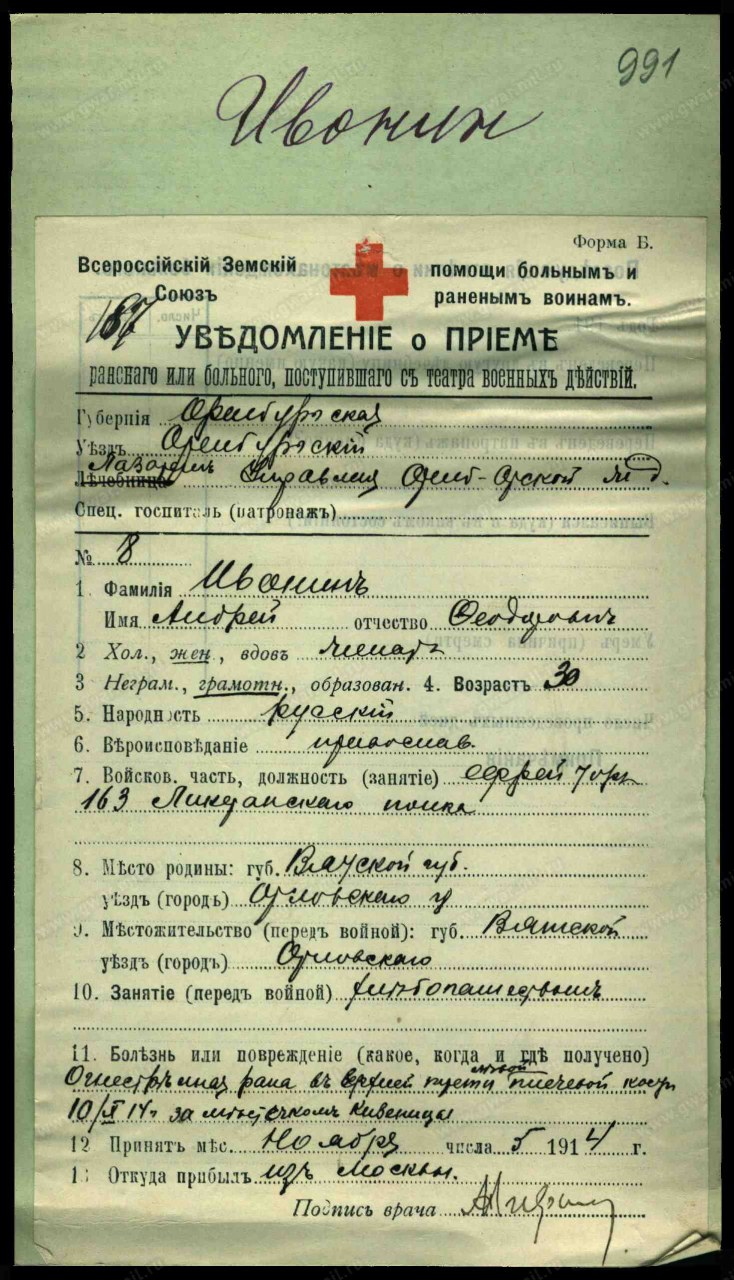 991
Ивонин
Форма Б.
Всероссійскій Земскій
Союзъ
помощи больнымъ и
раненымъ воинамъ.
187
УВѢДОМЛЕНІЕ о ПРІЕМѢ
раненаго или больного, поступившаго съ театра военныхъ дѣйствій.
Губернія Оренбургская
Уѣздъ Оренбургскій
Лазаретъ
Лѣчебница Управленія Оренб-Орской ж д.
Спец. госпиталь (патронажъ)
№ 8
1 Фамилія Ивонинъ
Имя Андрей отчество Феодоровичъ
2 Хол., жен., вдовъ женатъ
3 Неграм., грамотн., образован. 4. Возрастъ 30
5. Народность русскій
6. Вѣроисповѣданіе православ.
7. Войсков. часть, должность (занятіе) ефрейторъ
163 полка
8. Мѣсто родины: губ. Вятской губ.
уѣздъ (городъ) Орловскаго у
9. Мѣстожительство (передъ войной): губ. Вятской
уѣздъ (городъ) Орловскаго
10. Занятіе (передъ войной) хлѣбопашество
11. Болѣзнь или поврежденіе (какое, когда и гдѣ получено)
Огнестрѣльная рана въ верхней трети лѣвой плечевой кости
10/X 14 г за мѣстечкомъ
12 Принятъ мѣс. Ноября числа 5 1914 г.
13 Откуда прибылъ изъ Москвы.
Подпись врача